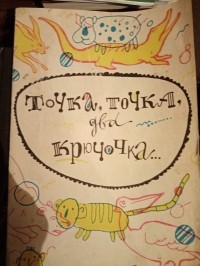 Точка, точка,
два
крючочка...